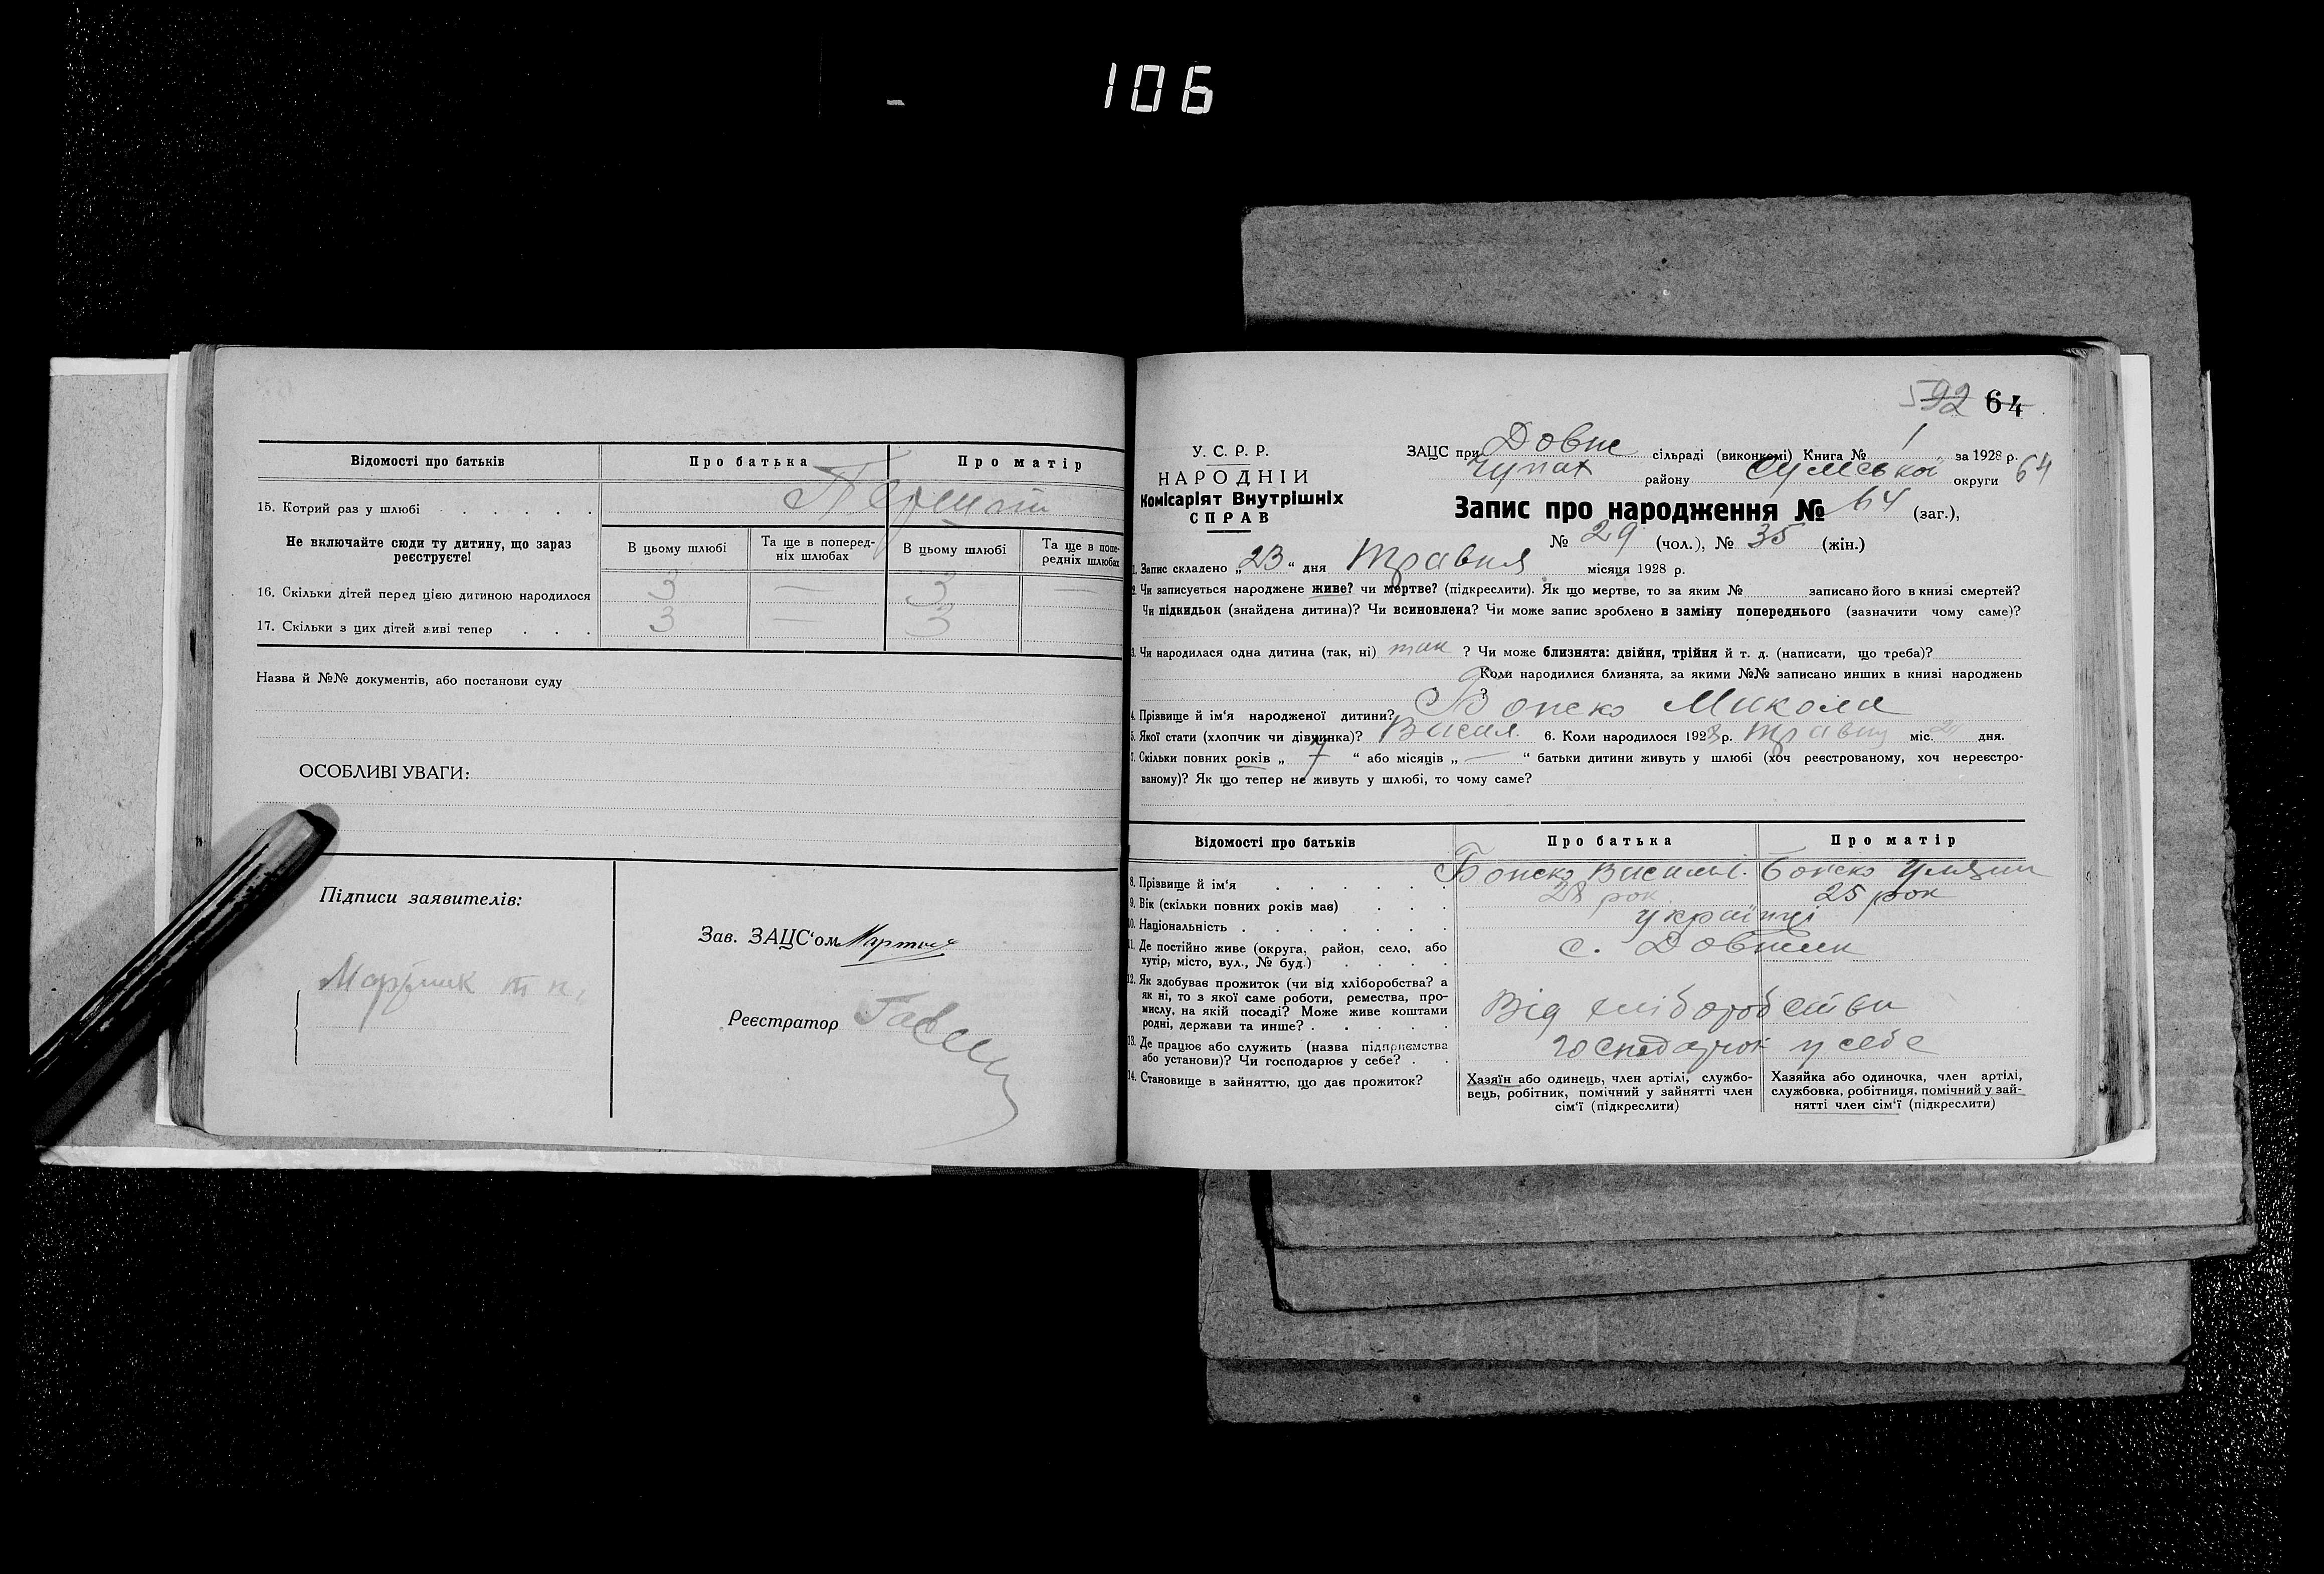 106
Відомості про батьків
Про батька
Про матір
15. Котрий раз у шлюбі
Не включайте сюди ту дитину, що зараз реєструєте!
В цьому шлюбі
Та ще в поперед-
ніх шлюбах
В цьому шлюбі
Та ще в попе-
редніх шлюбах
16. Скільки дітей перед цією дитиною народилося 3 — 3 —
17. Скільки з цих дітей живі тепер 3 — 3
Назва й №№ документів, або постанови суду
ОСОБЛИВІ УВАГИ:
Підписи заявителів:
Зав. ЗАЦС'ом
Реєстратор
592 64
У. С. Р. Р.
НАРОДНІЙ
Комісаріят Внутрішніх
СПРАВ
ЗАЦС при Довже сільраді (виконкомі) Книга № 1 за 1928 р.
Чупах району Сумської округи 64
Запис про народження № 64 (заг.),
№ 29 (чол.), № 35 (жін.)
1. Запис складено „23“ дня Травня місяця 1928 р.
2. Чи записується народжене живе? чи мертве? (підкреслити). Як що мертве, то за яким № записано його в книзі смертей?
Чи підкидьок (знайдена дитина)? Чи всиновлена? Чи може запис зроблено в заміну попереднього (зазначити чому саме)?
3. Чи народилася одна дитина (так, ні) так ? Чи може близнята: двійня, трійня й т. д. (написати, що треба)?
Коли народилися близнята, за якими №№ записано инших в книзі народжень
?
4. Прізвище й ім'я народженої дитини? Микола
5. Якої стати (хлопчик чи дівчинка)? Васил. 6. Коли народилося 1928 р. Травня міс. дня.
7. Скільки повних років „ 7 “ або місяців „ — “ батьки дитини живуть у шлюбі (хоч реєстрованому, хоч нереєстро-
ваному)? Як що тепер не живуть у шлюбі, то чому саме?
Відомості про батьків
Про батька
Про матір
8. Прізвище й ім'я
9. Вік (скільки повних років має) 28 рок 25 рок
10. Національність українці
11. Де постійно живе (округа, район, село, або
хутір, місто, вул., № буд.) с.
12. Як здобуває прожиток (чи від хліборобства? а
як ні, то з якої саме роботи, ремества, про-
мислу, на якій посаді? Може живе коштами
родні, держави та инше? Від хліборобства
13. Де працює або служить (назва підприємства
або установи)? Чи господарює у себе? у себе
14. Становище в зайняттю, що дає прожиток?
Хазяїн або одинець, член артілі, службо-
вець, робітник, помічний у зайнятті член
сім'ї (підкреслити)
Хазяйка або одиночка, член артілі,
службовка, робітниця, помічний у зай-
нятті член сім'ї (підкреслити)